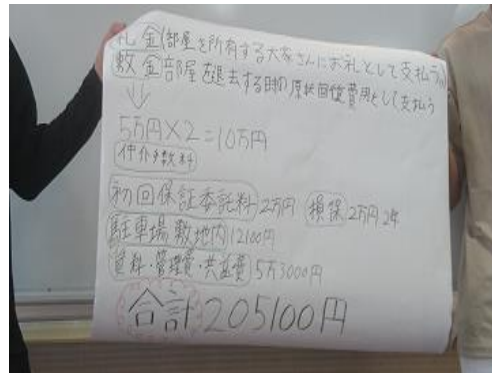 礼金(部屋を所有する大家さんにお礼として支払う
敷金 部屋を退去する時の原状回復費用として支払う
5万円×2=10万円
仲介手数料
初回保証委託料 2万円 損保 2万円 2年
駐車場敷地内 12100円
賃料・管理費・共益費 5万3000円
合計 205100円